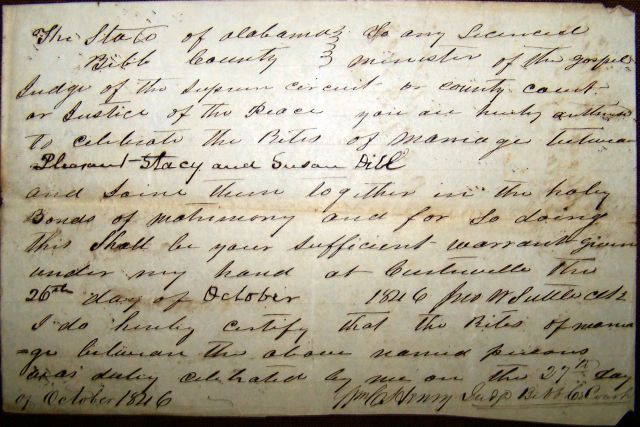 The State of Alabama } To any Licenced
Bibb County } minister of the gospel
Judge of the Suprem circuit or county court
or Justice of the Peace you are hereby authoris
to celebrate the Rites of marriage between
Pleasant Stacy and Susan Dill
and Joine them together in the holy
Bonds of matrimony and for so doing
this Shall be your sufficient warrant given
under my hand at Centreville the
26th day of October 1846 Jno W Suttle Clk
I do hereby certify that the Rites of marria
=ge between the above named persons
was duly celebrated by me on the 27th day
of October 1846 Henry Judge Bibb Co Court